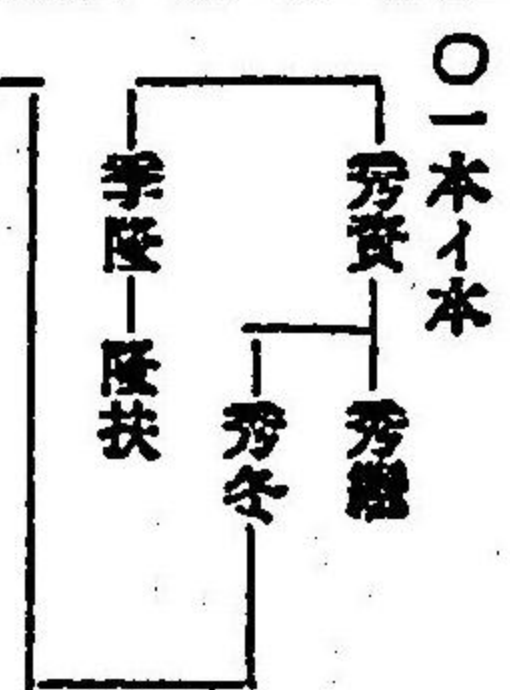 〇一本イ本
秀資
秀
秀冬
季隆
隆扶